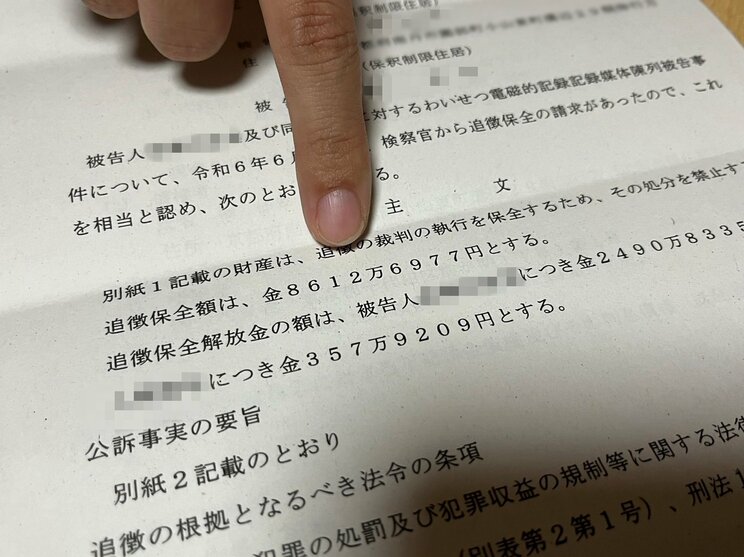 (保釈制限住居)
住
(保釈制限住居)
被告
被告人 及び同 に対するわいせつ電磁的記録記録媒体陳列被告事
件について、令和6年6 検察官から追徴保全の請求があったので、これ
を相当と認め、次のとお る。
主 文
別紙1記載の財産は、追徴の裁判の執行を保全するため、その処分を禁止す
追徴保全額は、金8612万6977円とする。
追徴保全解放金の額は、被告人 につき金2490万8335
につき金357万9209円とする。
公訴事実の要旨
別紙2記載のとおり
追徴の根拠となるべき法令の条項
犯罪の処罰及び犯罪収益の規制等に関する法律
(別表第2第1号)、刑法1